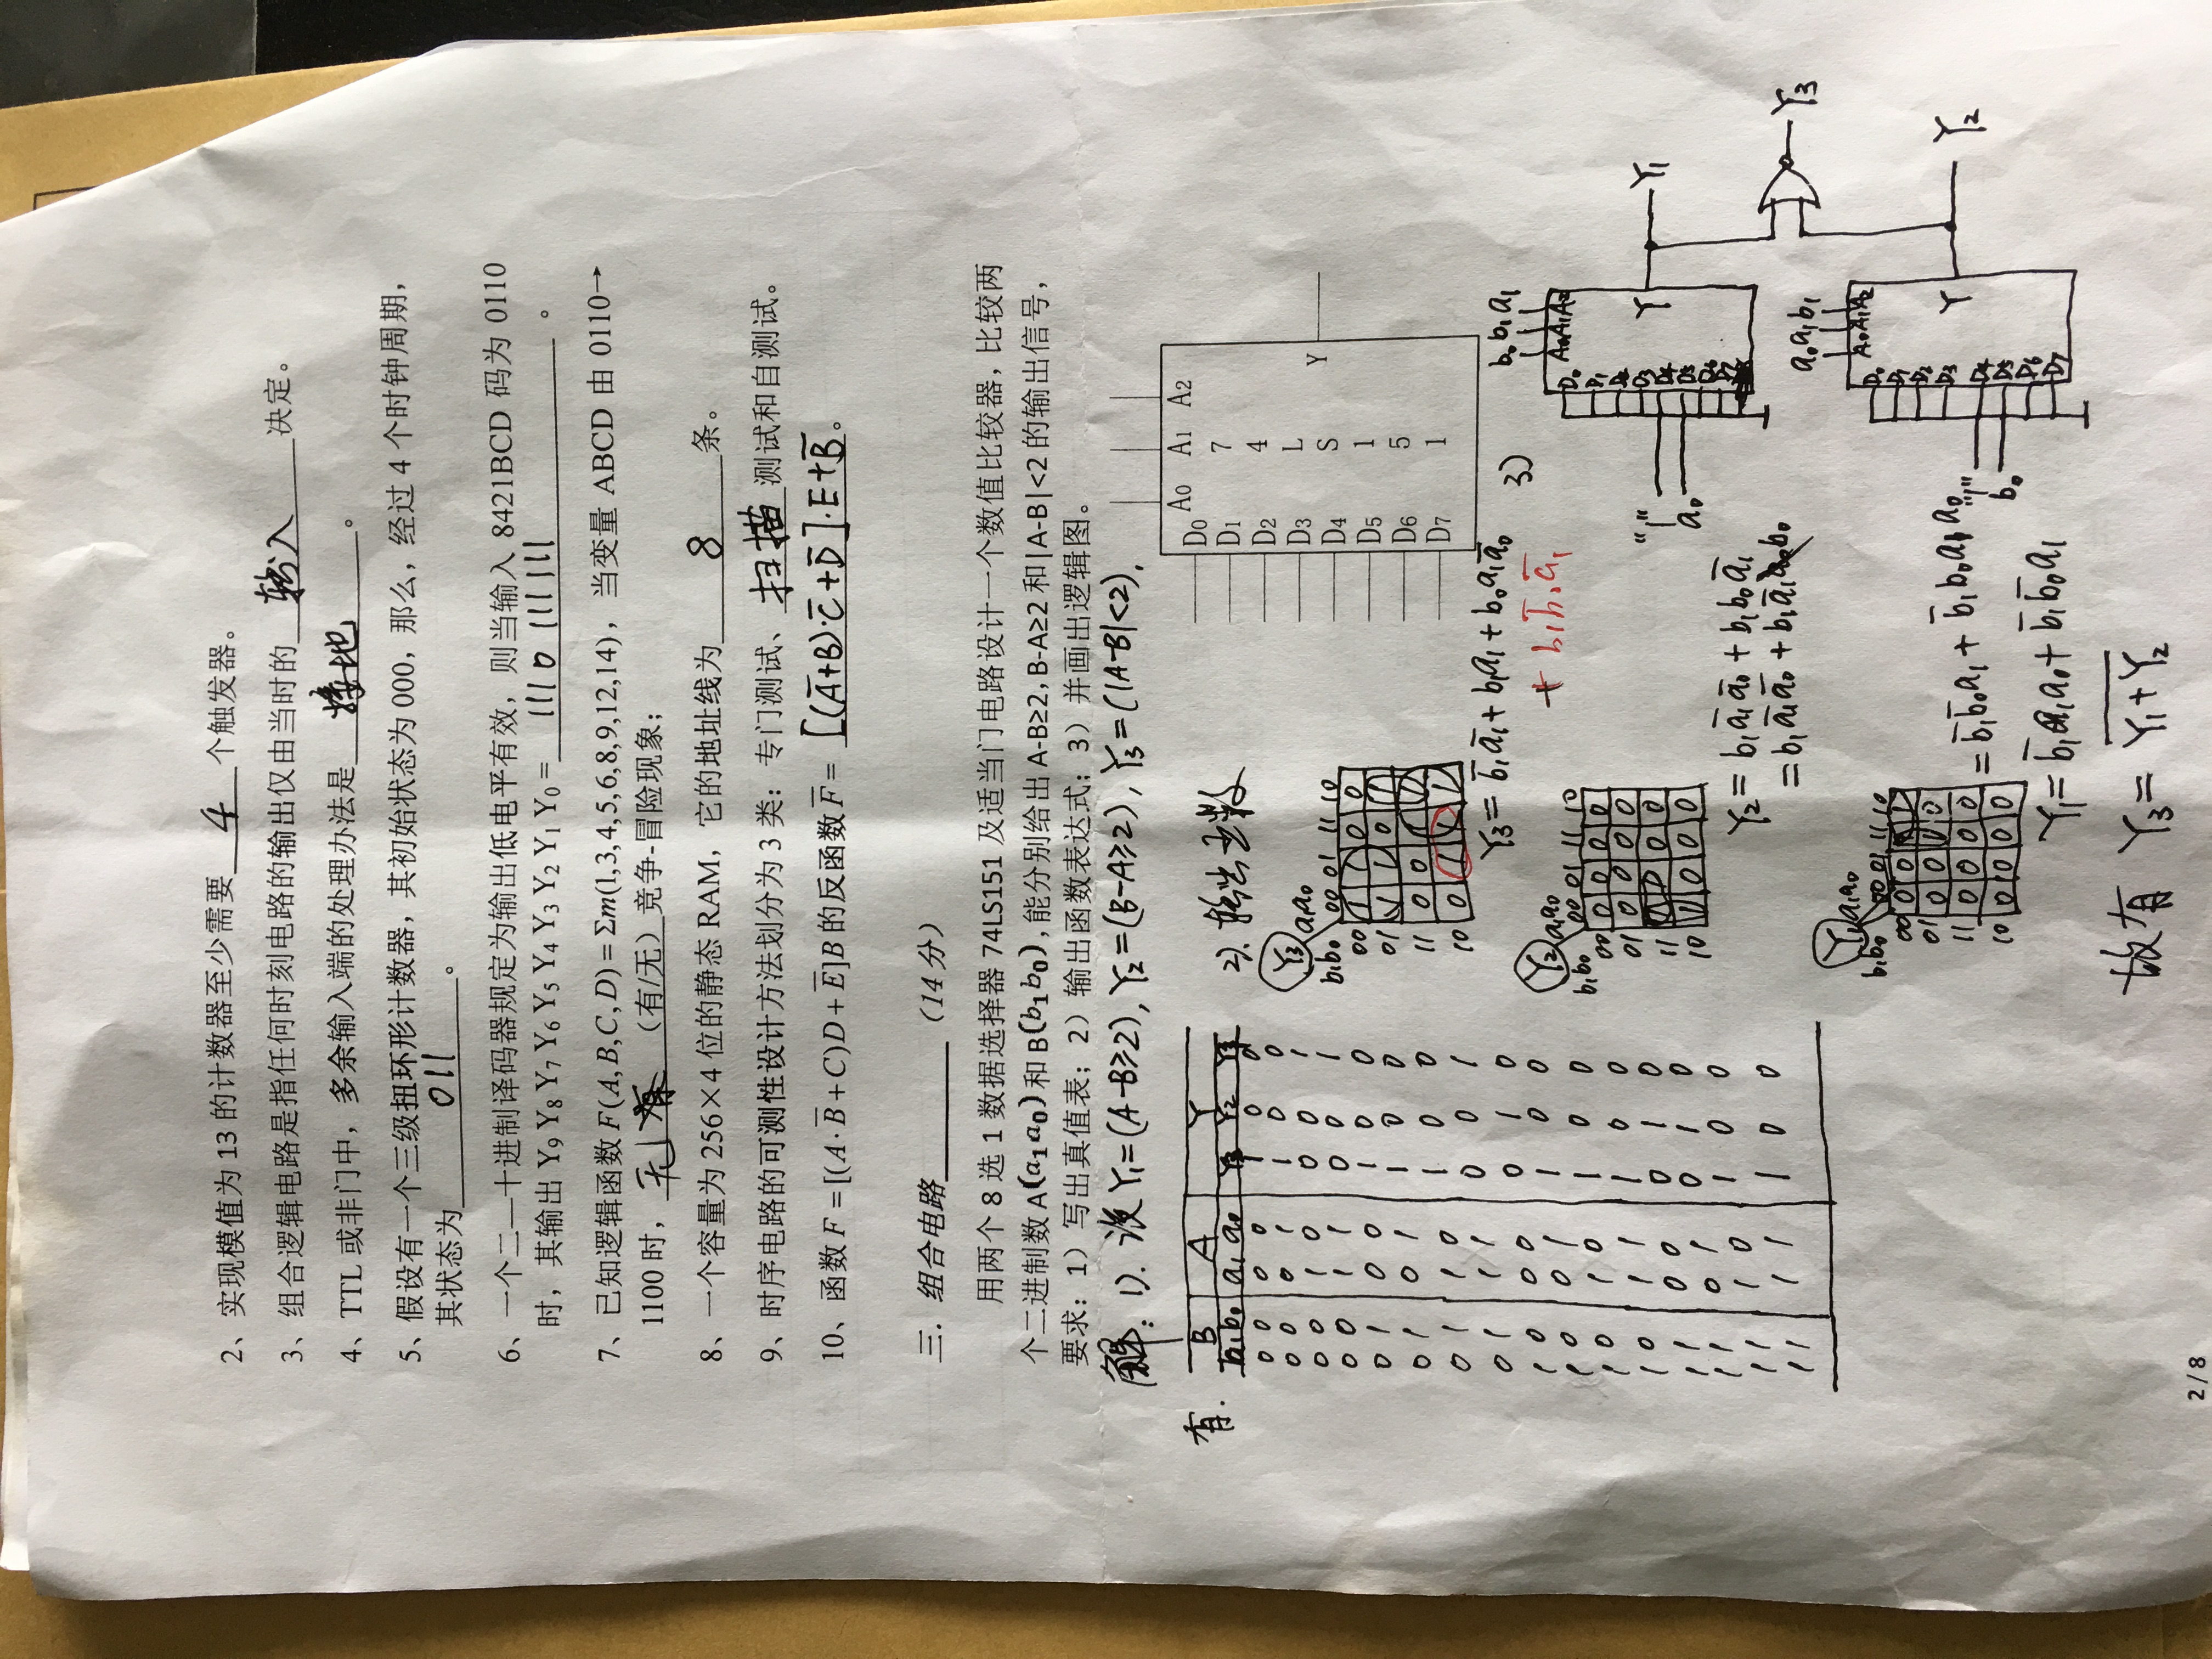 2、实现模值为 13 的计数器至少需要 4 个触发器。
3、组合逻辑电路是指任何时刻电路的输出仅由当时的 输入 决定。
4、TTL 或非门中，多余输入端的处理办法是 接地 。
5、假设有一个三级扭环形计数器，其初始状态为 000，那么，经过 4 个时钟周期，
其状态为 011 。
6、一个二—十进制译码器规定为输出低电平有效，则当输入 8421BCD 码为 0110
时，其输出 Y₉ Y₈ Y₇ Y₆ Y₅ Y₄ Y₃ Y₂ Y₁ Y₀ = 1110 111111 。
7、已知逻辑函数 F(A,B,C,D) = Σm(1,3,4,5,6,8,9,12,14)，当变量 ABCD 由 0110→
1100 时， 无 （有/无）竞争-冒险现象；
8、一个容量为 256×4 位的静态 RAM，它的地址线为 8 条。
9、时序电路的可测性设计方法划分为 3 类：专门测试、 扫描 测试和自测试。
10、函数 F = [(A·B̅+C)D+E̅]B 的反函数 F̅ = [(A̅+B)·C̅+D̅]·E+B̅。
三. 组合电路 （14 分）
用两个 8 选 1 数据选择器 74LS151 及适当门电路设计一个数值比较器，比较两
个二进制数 A(a₁a₀) 和 B(b₁b₀)，能分别给出 A-B≥2，B-A≥2 和|A-B|<2 的输出信号，
要求：1）写出真值表；2）输出函数表达式；3）并画出逻辑图。
解：1). 设 Y₁=(A-B≥2), Y₂=(B-A≥2), Y₃=(|A-B|<2),
有.
B A Y
b₁b₀ a₁ a₀ Y₃ Y₂ Y₁
0 0 0 0 1 0 0
0 0 0 1 1 0 0
0 0 1 0 0 0 1
0 0 1 1 0 0 1
0 1 0 0 1 0 0
0 1 0 1 1 0 0
0 1 1 0 1 0 0
0 1 1 1 0 0 1
1 0 0 0 0 1 0
1 0 0 1 1 0 0
1 0 1 0 1 0 0
1 0 1 1 1 0 0
1 1 0 0 0 1 0
1 1 0 1 0 1 0
1 1 1 0 1 0 0
1 1 1 1 1 0 0
2). 输出函数
Y₃ a₁a₀
b₁b₀ 00 01 11 10
00 1 1 0 0
01 1 1 0 1
11 0 0 1 1
10 0 1 1 1
Y₃= b̅₁a̅₁+b₁a₁+b₀a₁a̅₀
+ b₁b̅₀a̅₁
Y₂ a₁a₀
b₁b₀ 00 01 11 10
00 0 0 0 0
01 0 0 0 0
11 1 1 0 0
10 1 0 0 0
Y₂= b₁a̅₁a̅₀+b₁b₀a̅₁
=b₁a̅₁a̅₀+b₁a̅₁b₀
Y₁ a₁a₀
b₁b₀ 00 01 11 10
00 0 0 1 1
01 0 0 1 0
11 0 0 0 0
10 0 0 0 0
= b̅₁b̅₀a₁+b̅₁b₀a₁a₀
Y₁= b̅₁a₁a₀+b̅₁b̅₀a₁
故有 Y₃= Y₁+Y₂
A₀ A₁ A₂
D₀
D₁ 7
D₂ 4
D₃ L
D₄ S Y
D₅ 1
D₆ 5
D₇ 1
3)
b₀ b₁ a₁
A₀A₁A₂
D₀
D₁
D₃
"1"
a₀
Y Y₁
Y₃
a₀a₁b₁
A₀A₁A₂
D₀
D₁
D₂
D₃
"1" D₄
b₀ D₅
D₆
D₇
Y Y₂
2 / 8